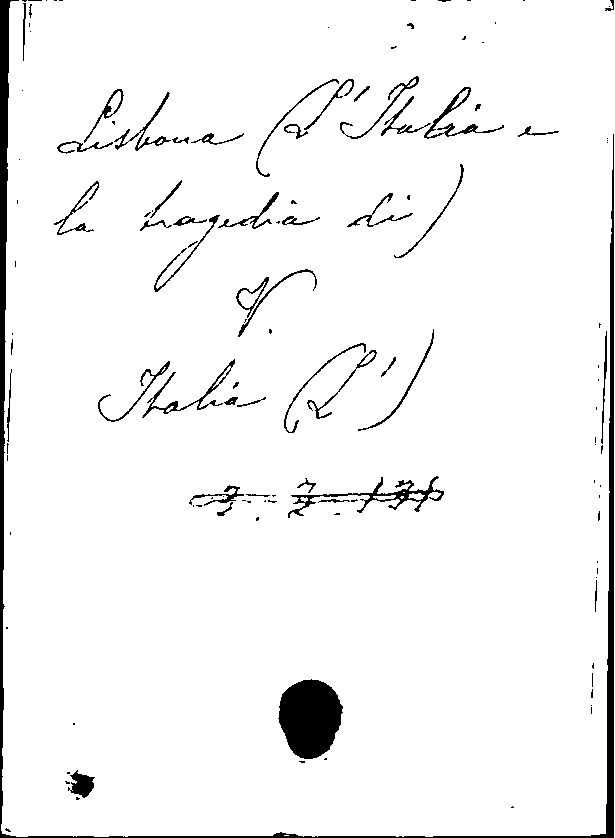 Lisbona (L'Italia e
la tragedia di)
V.
Italia (L')